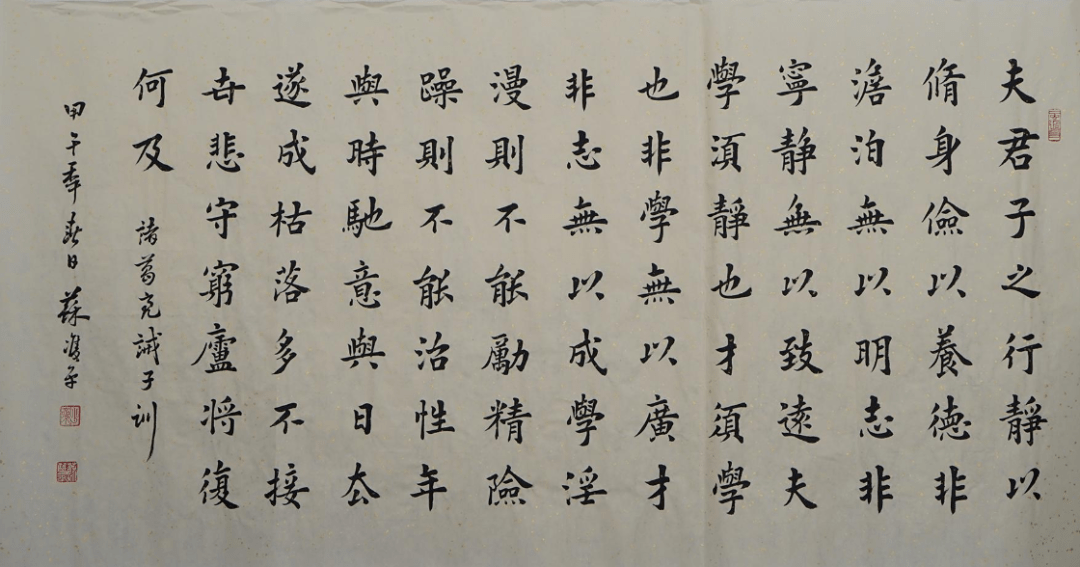 夫君子之行靜以
脩身儉以養德非
澹泊無以明志非
寧靜無以致遠夫
學須靜也才須學
也非學無以廣才
非志無以成學淫
漫則不能勵精險
躁則不能治性年
與時馳意與日去
遂成枯落多不接
世悲守窮廬將復
何及 諸葛亮誡子训
甲午年春日蘇平